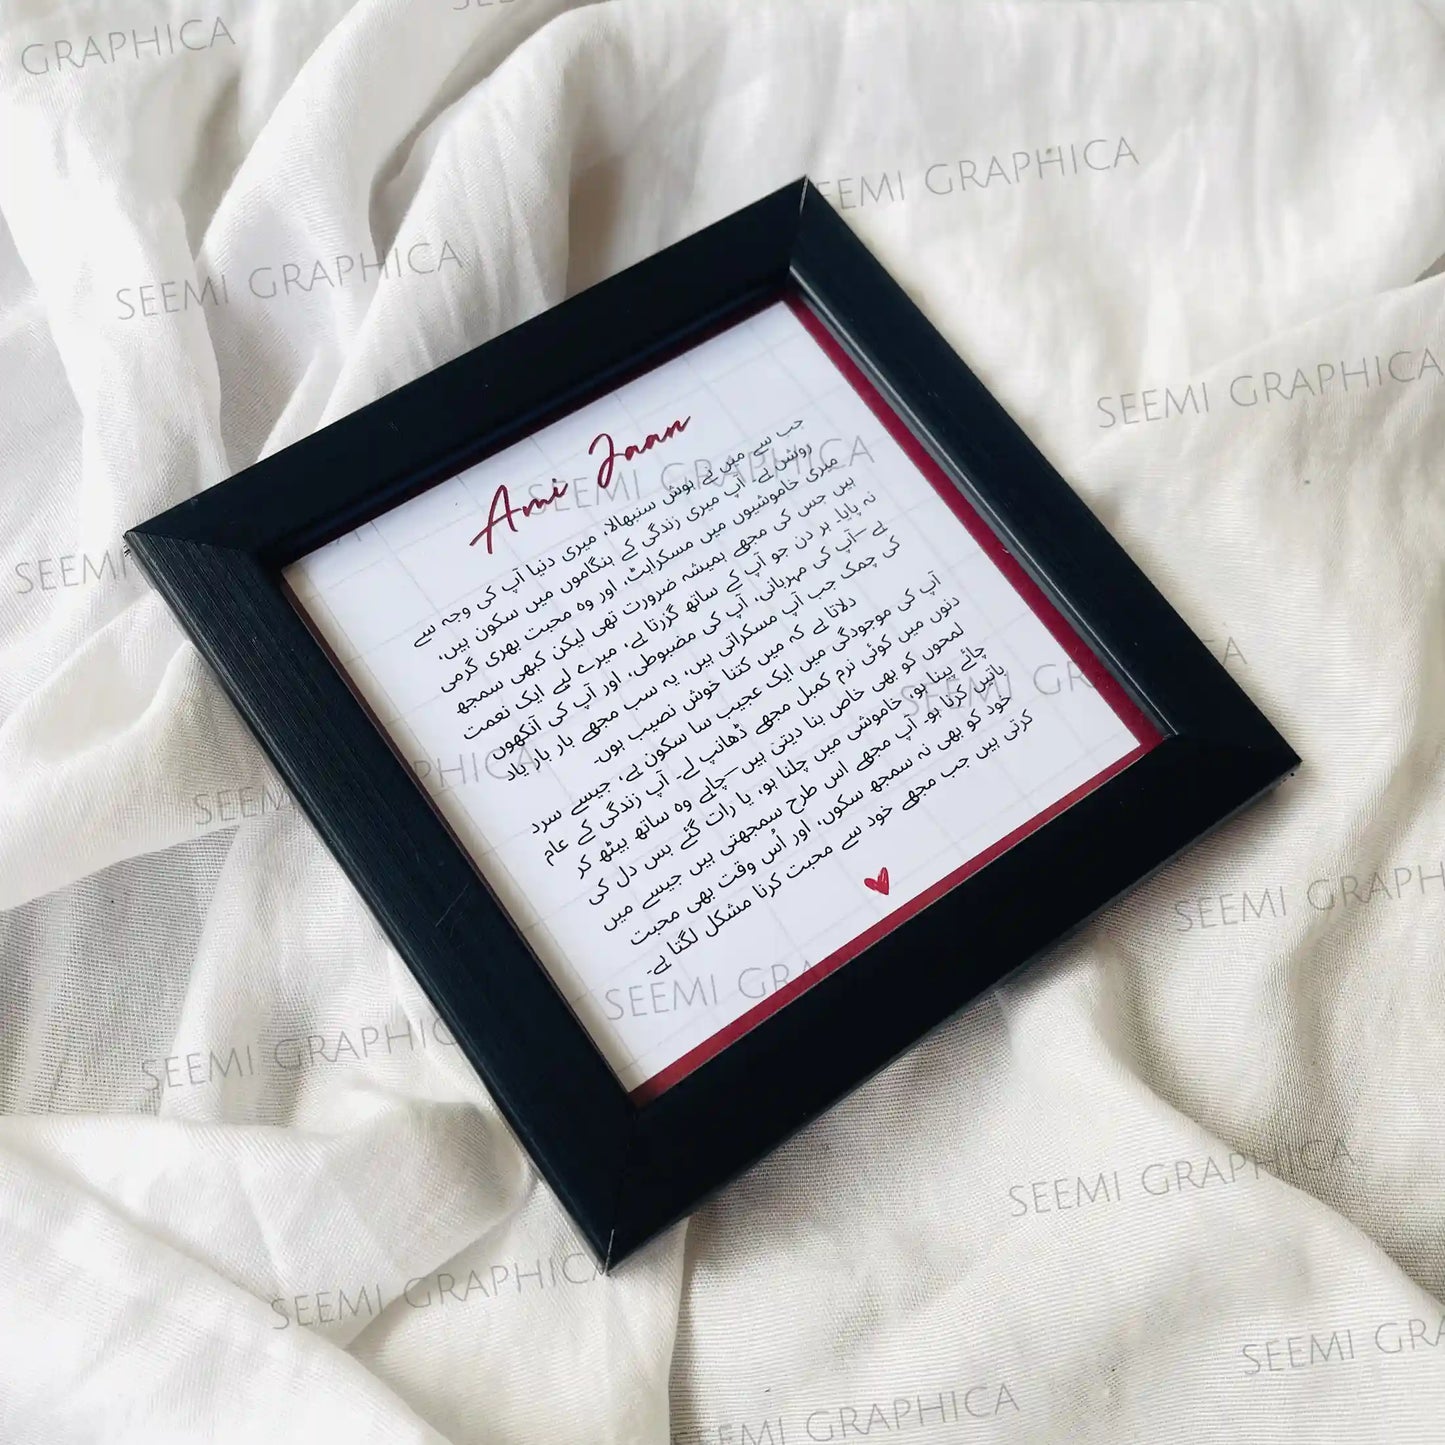 Ami Jaan
جب سے میں نے ہوش سنبھالا، میری دنیا آپ کی وجہ سے
روشن ہے۔ آپ میری زندگی کے ہنگاموں میں سکون ہیں،
میری خاموشیوں میں مسکراہٹ، اور وہ محبت بھری گرمی
ہیں جس کی مجھے ہمیشہ ضرورت تھی لیکن کبھی سمجھ
نہ پایا۔ ہر دن جو آپ کے ساتھ گزرتا ہے، میرے لیے ایک نعمت
ہے—آپ کی مہربانی، آپ کی مضبوطی، اور آپ کی آنکھوں
کی چمک جب آپ مسکراتی ہیں، یہ سب مجھے بار بار یاد
دلاتا ہے کہ میں کتنا خوش نصیب ہوں۔
آپ کی موجودگی میں ایک عجیب سا سکون ہے، جیسے سرد
دنوں میں کوئی نرم کمبل مجھے ڈھانپ لے۔ آپ زندگی کے عام
لمحوں کو بھی خاص بنا دیتی ہیں—چاہے وہ ساتھ بیٹھ کر
چائے پینا ہو، خاموشی میں چلنا ہو، یا رات گئے بس دل کی
باتیں کرنا ہو۔ آپ مجھے اس طرح سمجھتی ہیں جیسے میں
خود کو بھی نہ سمجھ سکوں، اور اُس وقت بھی محبت
کرتی ہیں جب مجھے خود سے محبت کرنا مشکل لگتا ہے۔
SEEMI GRAPHICA